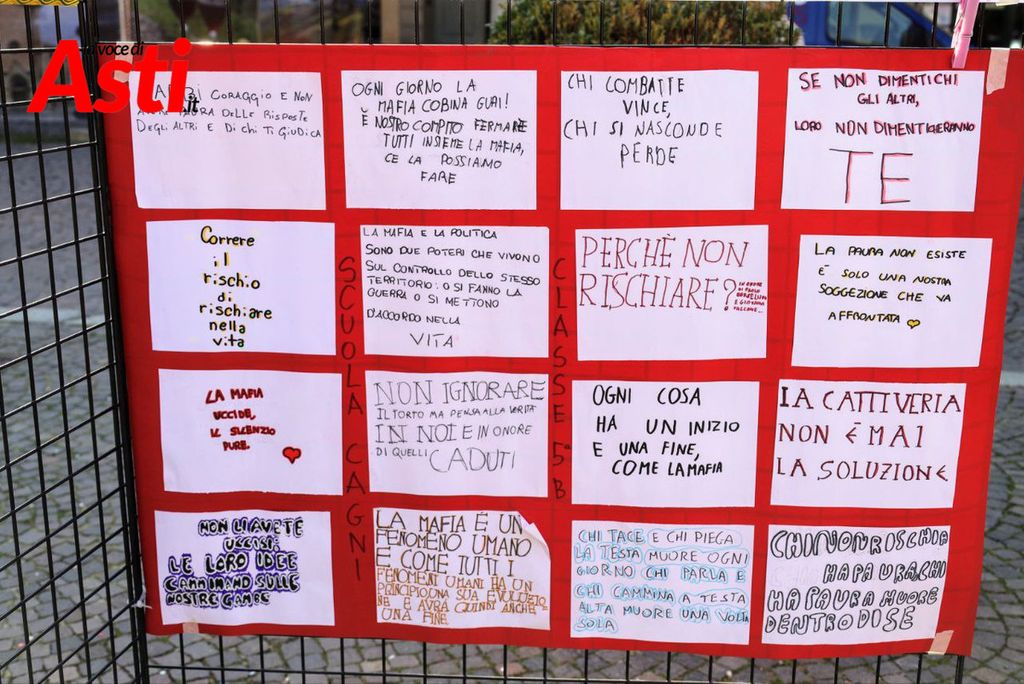 la voce di
Asti
.it
ABBI CORAGGIO E NON
AVERE PAURA DELLE RISPOSTE
DEGLI ALTRI E DI CHI TI GIUDICA
OGNI GIORNO LA
MAFIA COBINA GUAI!
È NOSTRO COMPITO FERMARE
TUTTI INSIEME LA MAFIA,
CE LA POSSIAMO
FARE
CHI COMBATTE
VINCE,
CHI SI NASCONDE
PERDE
SE NON DIMENTICHI
GLI ALTRI,
LORO NON DIMENTICHERANNO
TE
Correre
il
rischio
di
rischiare
nella
vita
LA MAFIA E LA POLITICA
SONO DUE POTERI CHE VIVONO
SUL CONTROLLO DELLO STESSO
TERRITORIO: O SI FANNO LA
GUERRA O SI METTONO
D'ACCORDO NELLA
VITA
PERCHÈ NON
RISCHIARE?
IN ONORE
DI PAOLO
BORSELLINO
E GIOVANNI
FALCONE...
LA PAURA NON ESISTE
È SOLO UNA NOSTRA
SOGGEZIONE CHE VA
AFFRONTATA
LA MAFIA
UCCIDE,
IL SILENZIO
PURE.
NON IGNORARE
IL TORTO MA PENSA ALLA VERITÀ
IN NOI E IN ONORE
DI QUELLI CADUTI
OGNI COSA
HA UN INIZIO
E UNA FINE,
COME LA MAFIA
LA CATTIVERIA
NON È MAI
LA SOLUZIONE
NON LI AVETE
UCCISI:
LE LORO IDEE
CAMMINANO SULLE
NOSTRE GAMBE
LA MAFIA È UN
FENOMENO UMANO
E COME TUTTI I
FENOMENI UMANI HA UN
PRINCIPIO UNA SUA EVOLUZIO-
NE E AVRÀ QUINDI ANCHE
UNA FINE.
CHI TACE E CHI PIEGA
LA TESTA MUORE OGNI
GIORNO CHI PARLA E
CHI CAMMINA A TESTA
ALTA MUORE UNA VOLTA
SOLA
CHI NON RISCHIA
HA PAURA CHI
HA PAURA MUORE
DENTRO DI SE
SCUOLA CAGNI
CLASSE 5ªB